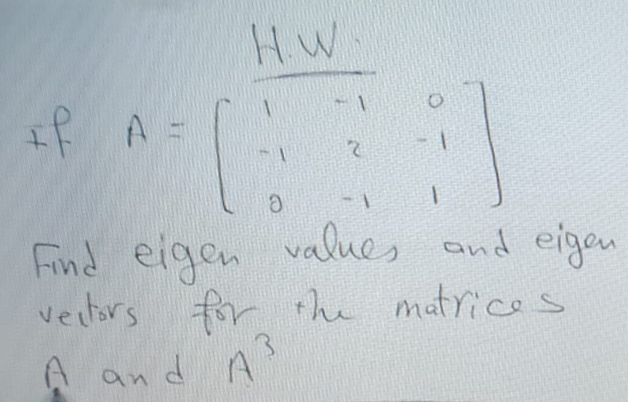 H.W.
If A = [ 1 -1 0
-1 2 -1
0 -1 1 ]
Find eigen values and eigen
vectors for the matrices
A and A³